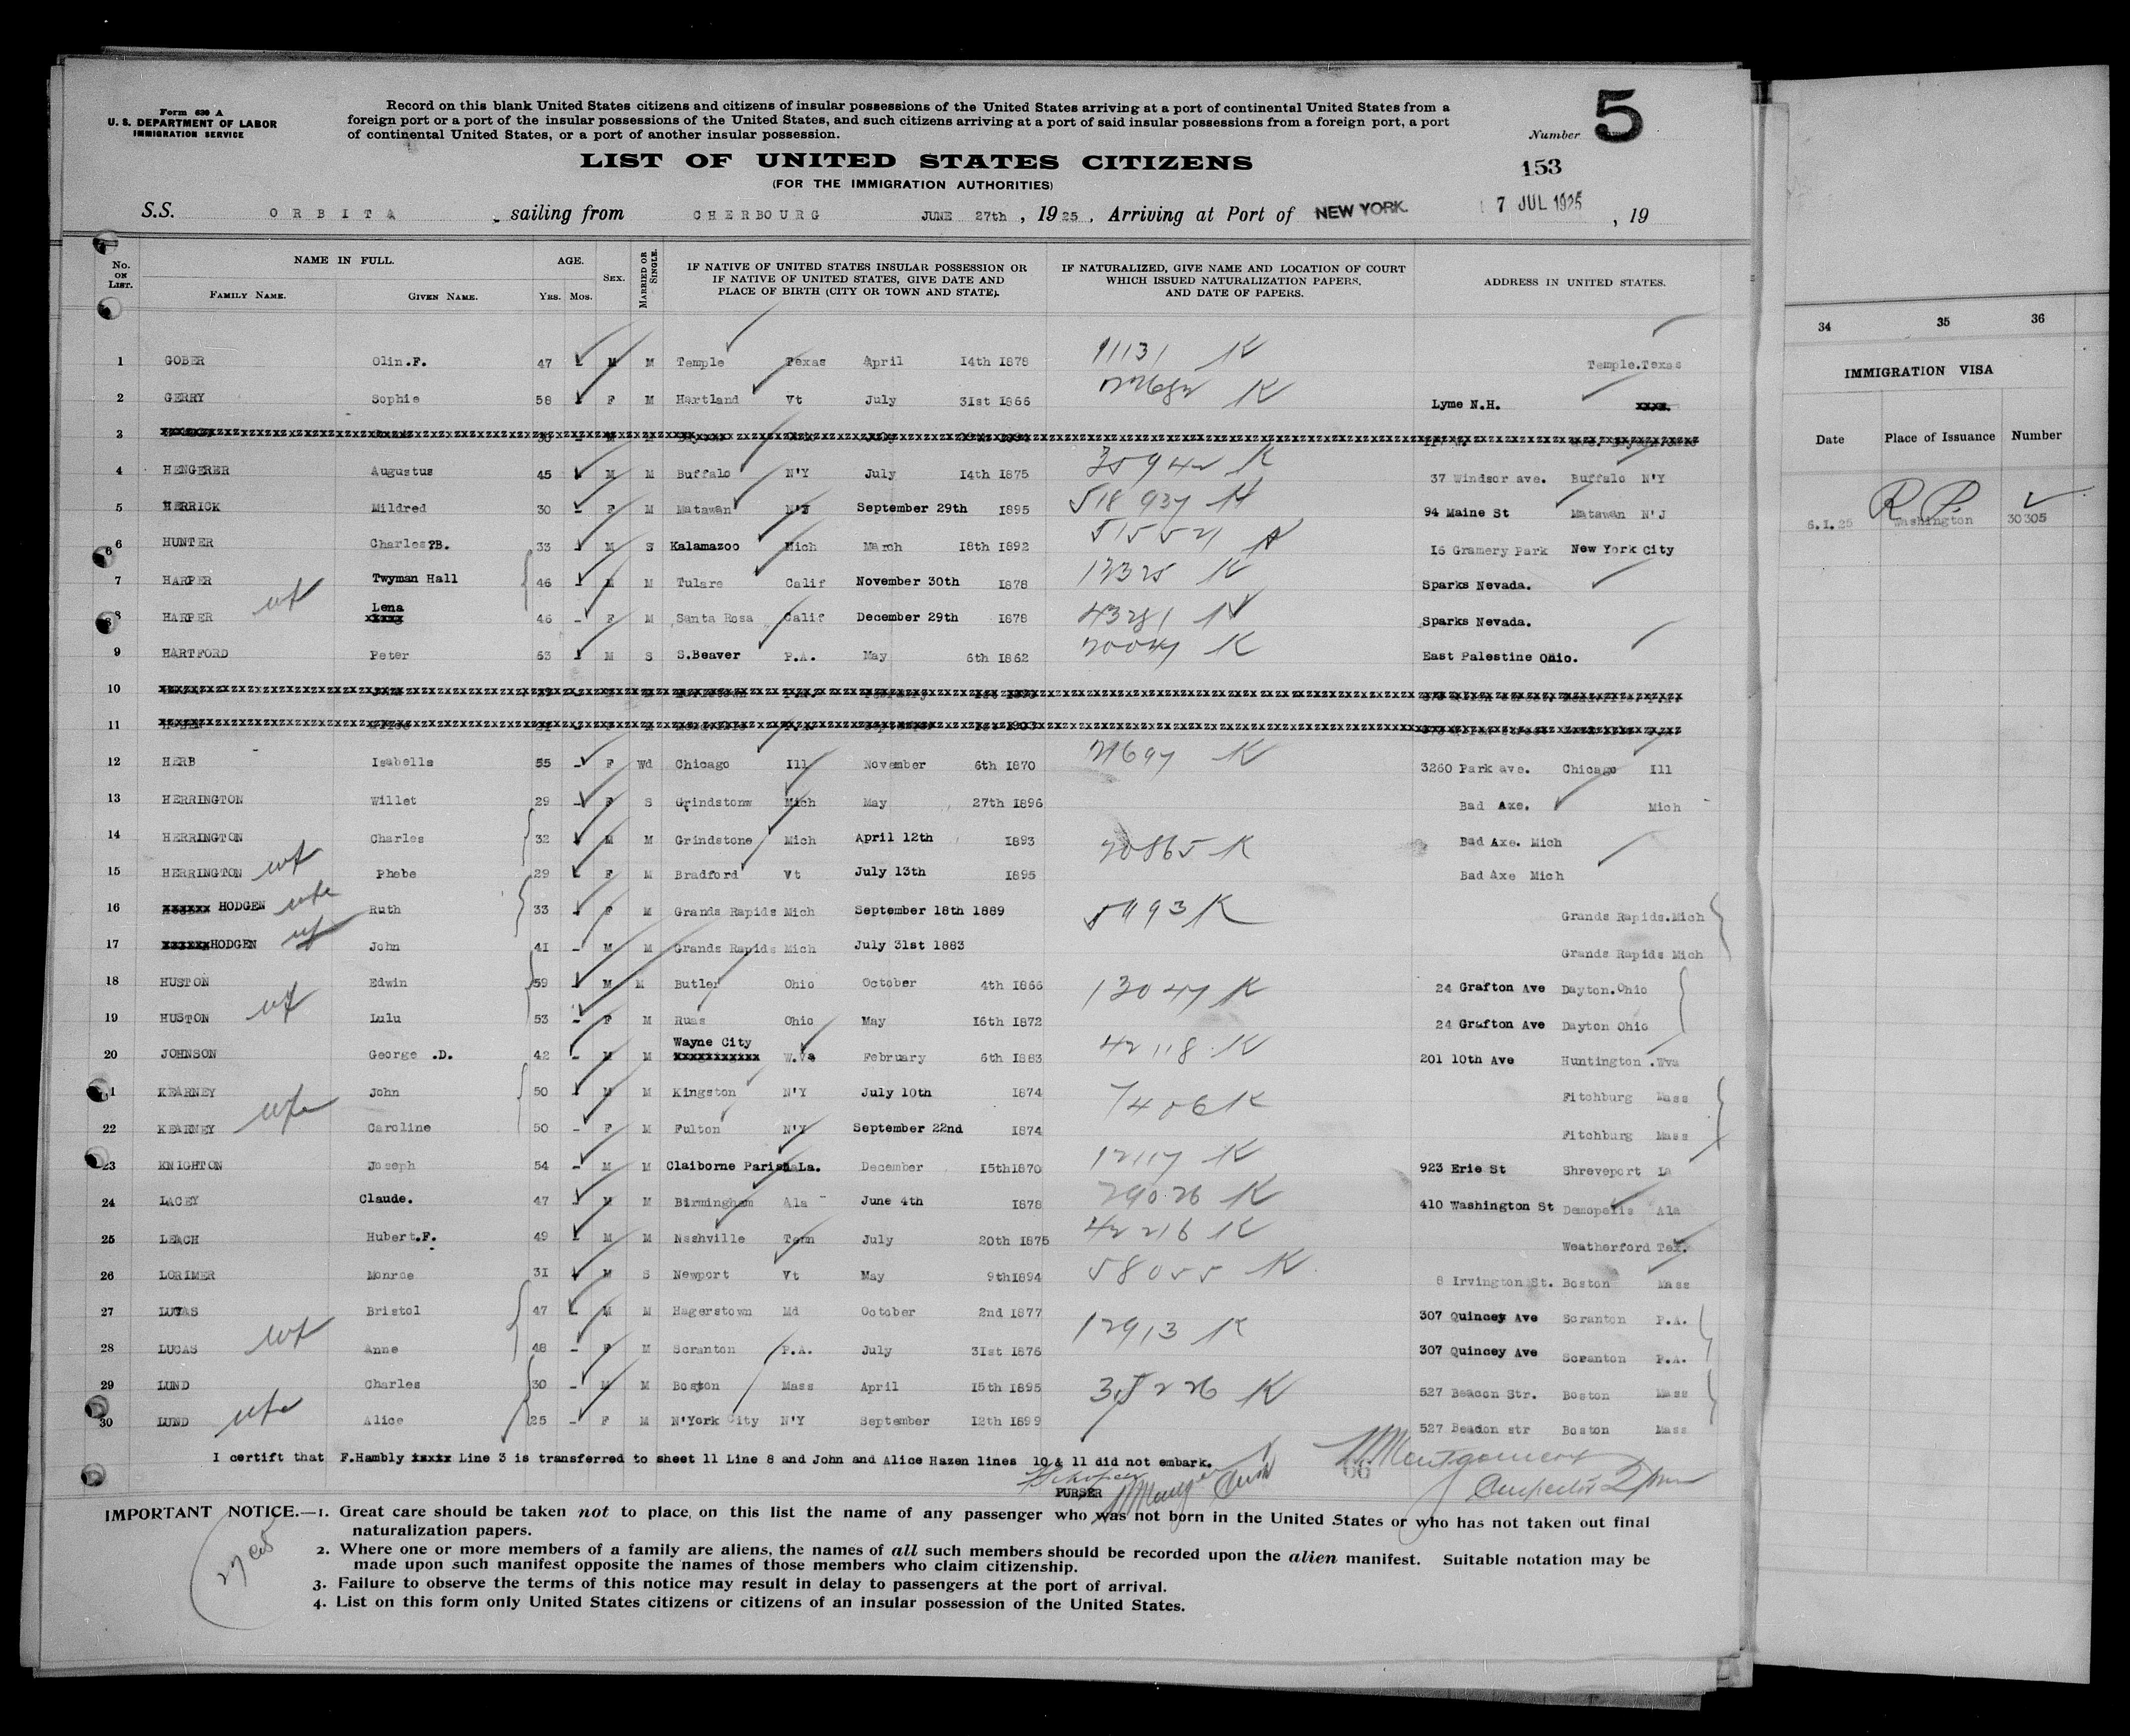 Form 630 A
U. S. DEPARTMENT OF LABOR
IMMIGRATION SERVICE
Record on this blank United States citizens and citizens of insular possessions of the United States arriving at a port of continental United States from a
foreign port or a port of the insular possessions of the United States, and such citizens arriving at a port of said insular possessions from a foreign port, a port
of continental United States, or a port of another insular possession.
Number 5
LIST OF UNITED STATES CITIZENS
153
(FOR THE IMMIGRATION AUTHORITIES)
S.S. ORBITA sailing from CHERBOURG JUNE 27th, 1925, Arriving at Port of NEW YORK 7 JUL 1925, 19
No. ON LIST. NAME IN FULL. FAMILY NAME. GIVEN NAME. AGE. YRS. MOS. SEX. MARRIED OR SINGLE. IF NATIVE OF UNITED STATES INSULAR POSSESSION OR IF NATIVE OF UNITED STATES, GIVE DATE AND PLACE OF BIRTH (CITY OR TOWN AND STATE). IF NATURALIZED, GIVE NAME AND LOCATION OF COURT WHICH ISSUED NATURALIZATION PAPERS, AND DATE OF PAPERS. ADDRESS IN UNITED STATES.
1 GOBER Olin.F. 47 - M M Temple Texas April 14th 1878 11131 K Temple.Texas
2 GERRY Sophie 58 - F M Hartland Vt July 31st 1866 K Lyme N.H. xxxx
3
4 HENGERER Augustus 45 - M M Buffalo N'Y July 14th 1875 35942 K 37 Windsor ave. Buffalo N'Y
5 HERRICK Mildred 30 - F M Matawan N'J September 29th 1895 518937 K 94 Maine St Matawan N'J
6 HUNTER Charles?B. 33 - M S Kalamazoo Mich March 18th 1892 515521 K 16 Gramery Park New York City
7 HARPER Twyman Hall 46 - M M Tulare Calif November 30th 1878 12325 K Sparks Nevada.
wf
8 HARPER xxxxx Lena 46 - F M Santa Rosa Calif December 29th 1878 43281 K Sparks Nevada.
9 HARTFORD Peter 63 - M S S.Beaver P.A. May 6th 1862 20047 K East Palestine Ohio.
10
11
12 HERB Isabella 55 - F Wd Chicago Ill November 6th 1870 21697 K 3260 Park ave. Chicago Ill
13 HERRINGTON Willet 29 - F S Grindstonw Mich May 27th 1896 Bad Axe. Mich
14 HERRINGTON Charles 32 - M M Grindstone Mich April 12th 1893 20865 K Bad Axe. Mich
wf
15 HERRINGTON Phebe 29 - F M Bradford Vt July 13th 1895 Bad Axe Mich
16 xxxxxx HODGEN wfe Ruth 33 - F M Grands Rapids Mich September 18th 1889 5993 K Grands Rapids.Mich
17 xxxxxx HODGEN wf John 41 - M M Grands Rapids Mich July 31st 1883 Grands Rapids Mich
18 HUSTON Edwin 59 - M M Butler Ohio October 4th 1866 13047 K 24 Grafton Ave Dayton.Ohio
wf
19 HUSTON Lulu 53 - F M Russ Ohio May 16th 1872 24 Grafton Ave Dayton Ohio
20 JOHNSON George .D. 42 - M M xxxxxxxxxxx Wayne City W.Va February 6th 1883 42118 K 201 10th Ave Huntington .Wva
21 KEARNEY John 50 - M M Kingston N'Y July 10th 1874 7406 K Fitchburg Mass
wfe
22 KEARNEY Caroline 50 - F M Fulton N'Y September 22nd 1874 Fitchburg Mass
23 KNIGHTON Joseph 54 - M M Claiborne Parish La. December 15th 1870 12117 K 923 Erie St Shreveport La
24 LACEY Claude. 47 - M M Birmingham Ala June 4th 1878 29026 K 410 Washington St Demopelis Ala
25 LEACH Hubert.F. 49 - M M Nashville Tenn July 20th 1875 42216 K Weatherford Tex.
26 LORIMER Monroe 31 - M S Newport Vt May 9th 1894 58055 K 8 Irvington St. Boston Mass
27 LUCAS Bristol 47 - M M Hagerstown Md October 2nd 1877 12913 K 307 Quincey Ave Scranton P.A.
wf
28 LUCAS Anne 48 - F M Scranton P.A. July 31st 1876 307 Quincey Ave Scranton P.A.
29 LUND Charles 30 - M M Boston Mass April 15th 1895 35226 K 527 Beacon Str. Boston Mass
wfe
30 LUND Alice 25 - F M N'York City N'Y September 12th 1899 527 Beacon str Boston Mass
I certify that F.Hambly xxxxx Line 3 is transferred to sheet 11 Line 8 and John and Alice Hazen lines 10 & 11 did not embark.
PURSER
66
Montgomery
IMPORTANT NOTICE.—1. Great care should be taken not to place on this list the name of any passenger who was not born in the United States or who has not taken out final
naturalization papers.
2. Where one or more members of a family are aliens, the names of all such members should be recorded upon the alien manifest. Suitable notation may be
made upon such manifest opposite the names of those members who claim citizenship.
3. Failure to observe the terms of this notice may result in delay to passengers at the port of arrival.
4. List on this form only United States citizens or citizens of an insular possession of the United States.
34 35 36
IMMIGRATION VISA
Date Place of Issuance Number
R.P.
6.1.25 Washington 30305